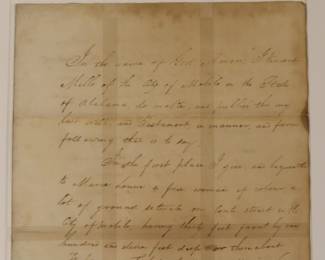 In the name of God Amen, I Stuart
Mills of the City of Mobile in the State
of Alabama, do make, and publish this my
last will and Testament in manner and form
following that is to say
In the first place I give and bequeath
to Maria a free woman of colour a
lot of ground situate on Conti street in the
City of Mobile, having thirty feet front by one
hundred and eleven feet deep or there about